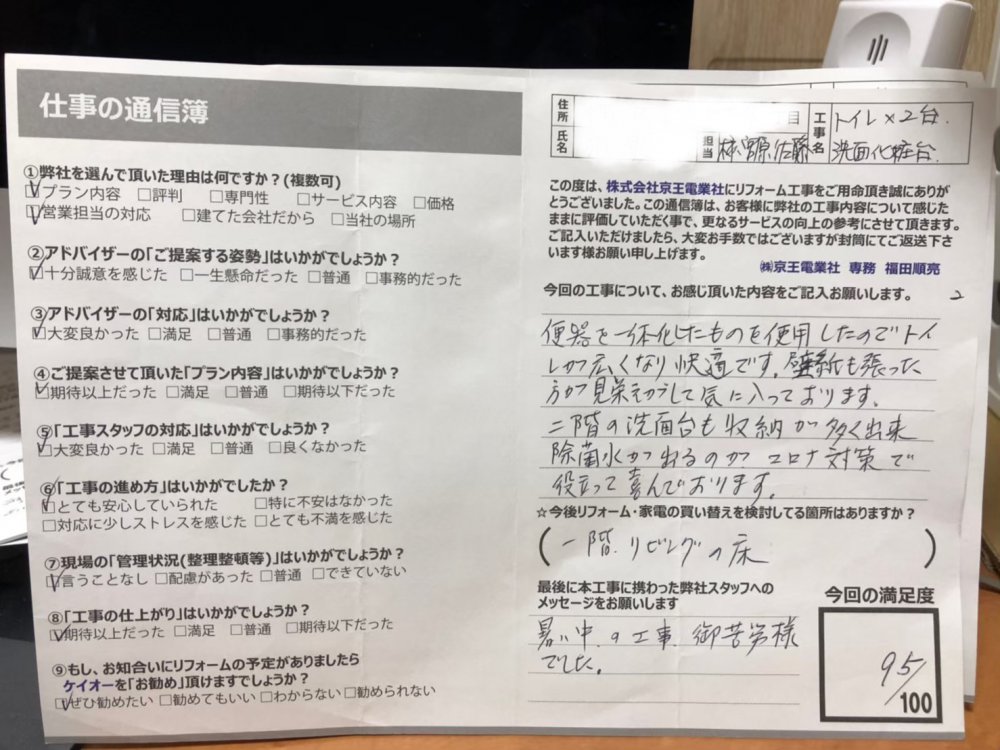 仕事の通信簿
①弊社を選んで頂いた理由は何ですか？(複数可)
☑プラン内容 □評判 □専門性 □サービス内容 □価格
☑営業担当の対応 □建てた会社だから □当社の場所
②アドバイザーの「ご提案する姿勢」はいかがでしょうか？
☑十分誠意を感じた □一生懸命だった □普通 □事務的だった
③アドバイザーの「対応」はいかがでしょうか？
☑大変良かった □満足 □普通 □事務的だった
④ご提案させて頂いた「プラン内容」はいかがでしょうか？
☑期待以上だった □満足 □普通 □期待以下だった
⑤「工事スタッフの対応」はいかがでしょうか？
☑大変良かった □満足 □普通 □良くなかった
⑥「工事の進め方」はいかがでしたか？
☑とても安心していられた □特に不安はなかった
□対応に少しストレスを感じた □とても不満を感じた
⑦現場の「管理状況(整理整頓等)」はいかがでしょうか？
☑言うことなし □配慮があった □普通 □できていない
⑧「工事の仕上がり」はいかがでしょうか？
☑期待以上だった □満足 □普通 □期待以下だった
⑨もし、お知合いにリフォームの予定がありましたら
ケイオーを「お勧め」頂けますでしょうか？
☑ぜひ勧めたい □勧めてもいい □わからない □勧められない
住所 目
氏名
担当 佐藤
工事名 トイレ×2台.
洗面化粧台.
この度は、株式会社京王電業社にリフォーム工事をご用命頂き誠にありが
とうございました。この通信簿は、お客様に弊社の工事内容について感じた
ままに評価していただく事で、更なるサービスの向上の参考にさせて頂きます。
ご記入いただけましたら、大変お手数ではございますが封筒にてご返送下さ
います様お願い申し上げます。
㈱京王電業社 専務 福田順亮
今回の工事について、お感じ頂いた内容をご記入お願いします。 2
便器を一体化したものを使用したのでトイ
レが広くなり快適です。壁紙も張った
方が見栄えがして気に入っております。
二階の洗面台も収納が多く出来
除菌水が出るのがコロナ対策で
役立って喜んでおります。
☆今後リフォーム・家電の買い替えを検討してる箇所はありますか？
(一階.リビングの床)
最後に本工事に携わった弊社スタッフへの
メッセージをお願いします
暑い中の工事御苦労様
でした。
今回の満足度
95/100